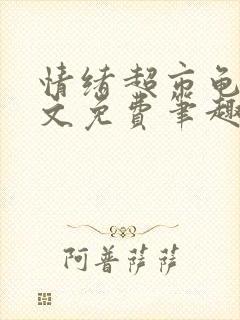 情绪超市龟
文免费笔趣
阿普萨萨